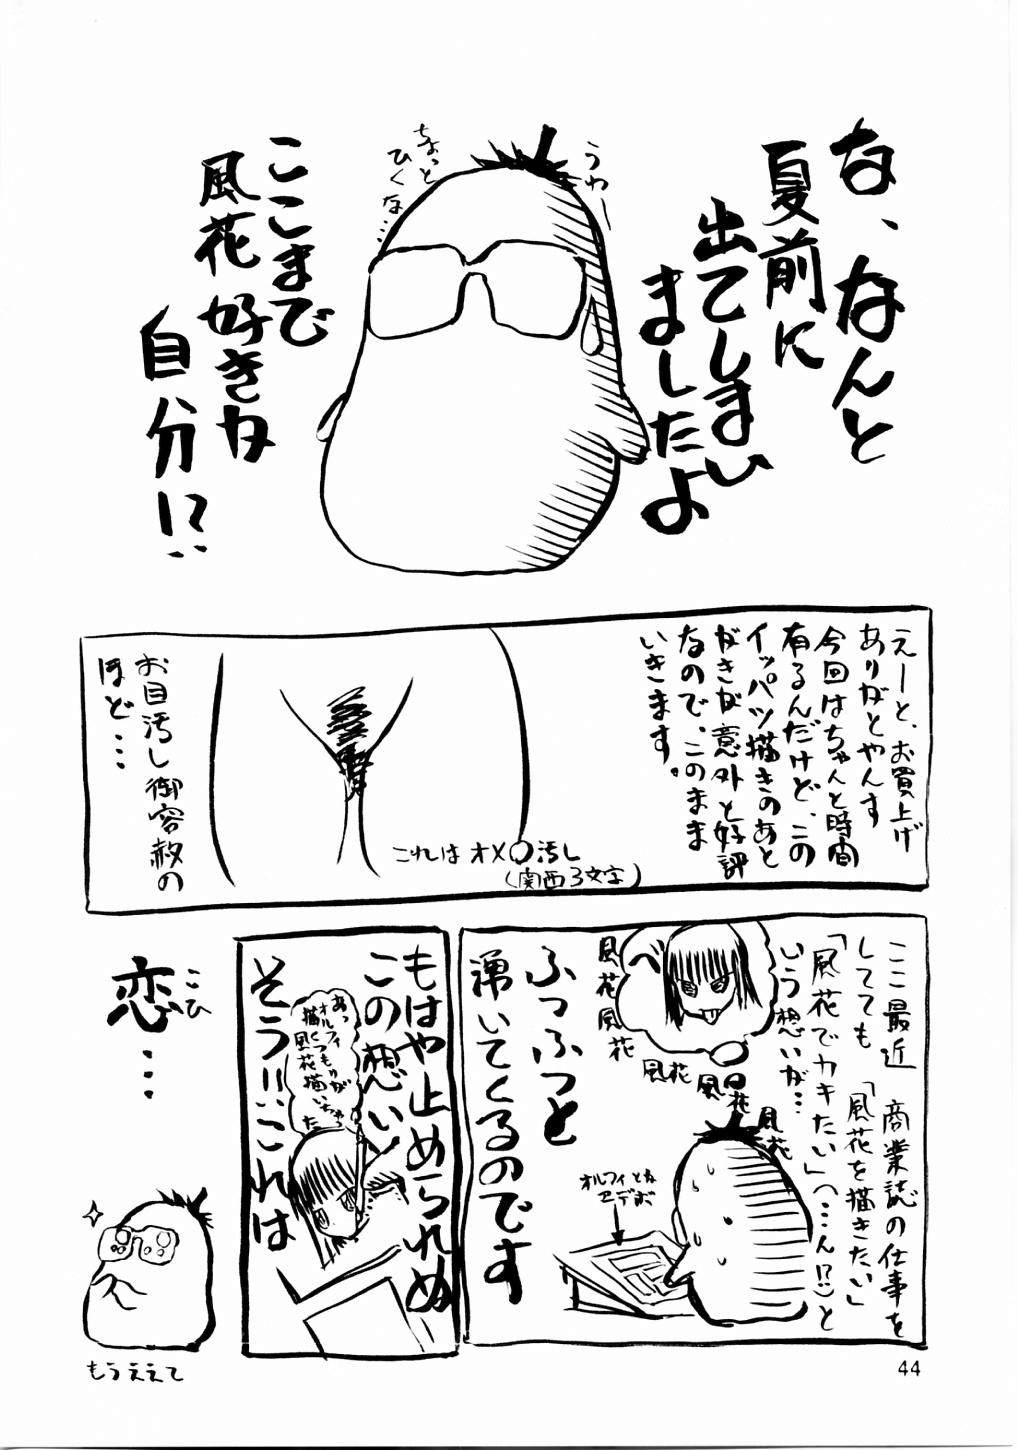 な、なんと
夏前に
出てしまい
ましたよ
うわー
ちょっと
ひくな…
ここまで
風花好きカ
自分!?
えーと、お買上げ
ありがとやんす
今回はちゃんと時間
有るんだけど、この
イッパツ描きのあと
がきが意外と好評
なので、このまま
いきます。
これはオメ〇汚し
(関西3文字)
お目汚し御容赦の
ほど…
ここ最近 商業誌の仕事を
してても「風花を描きたい」
「風花でカキたい」(…ん!?)と
いう想いが…
風花
風花
風花
風花
風花
ふつふつと
湧いてくるのです
オルフィとな
セデボ
もはや止められぬ
この想い
あっ
オルフィ
描くつもりが
風花描いちゃ
た
そう!!これは
恋…
こひ
もうええて
44